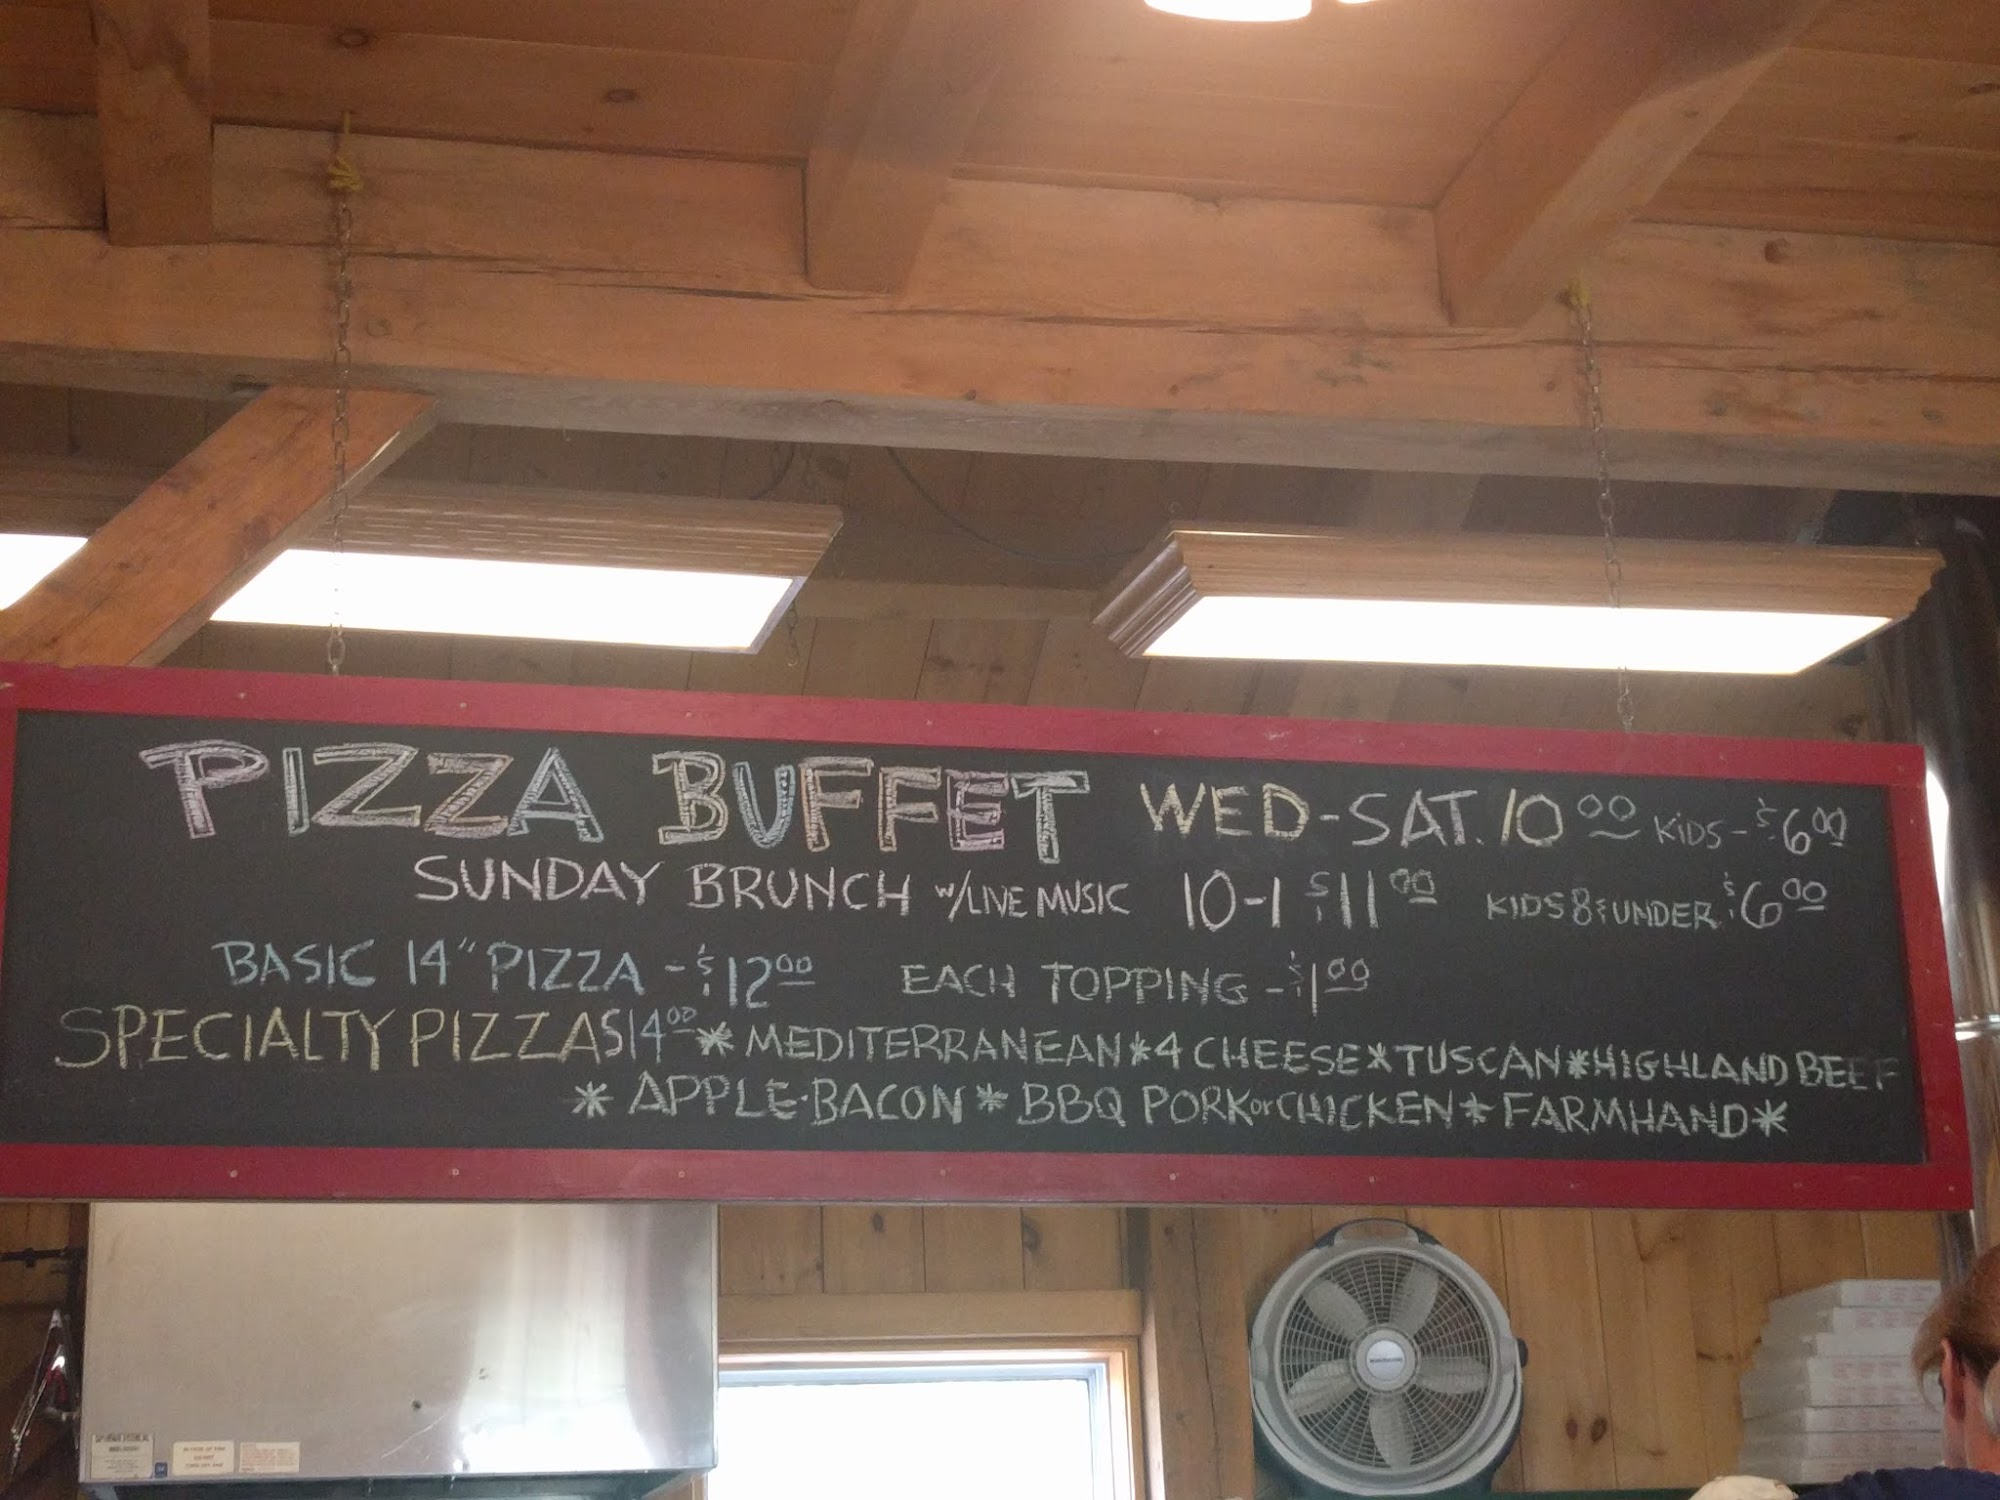 PIZZA BUFFET WED-SAT. 10 00 KIDS - $6 00
SUNDAY BRUNCH W/LIVE MUSIC 10-1 $11 00 KIDS 8 & UNDER $6 00
BASIC 14" PIZZA - $12 00 EACH TOPPING - $1 00
SPECIALTY PIZZAS 14 00 * MEDITERRANEAN * 4 CHEESE * TUSCAN * HIGHLAND BEEF
* APPLE·BACON * BBQ PORK or CHICKEN * FARMHAND *